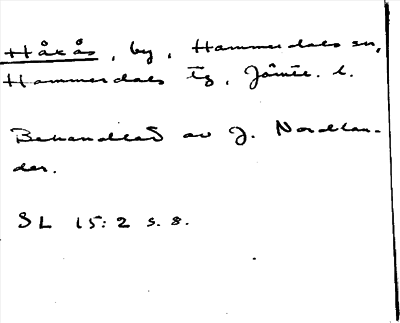 Håxås, by, Hammerdals sn,
Hammerdals tg, Jämtl. l.
Behandlad av J. Nordlan-
der.
SL 15:2 s. 8.